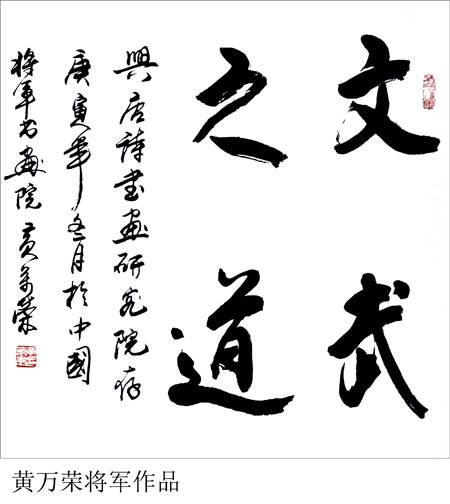 文武
之道
興唐詩書画研究院存
庚寅年冬月於中國
将军书画院黄万荣
黄万荣将军作品